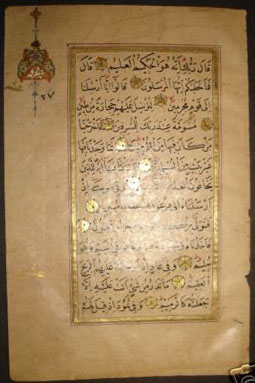 قال ربك إنه هو الحكيم العليم قال
فما خطبكم أيها المرسلون قالوا إنا أرسلنا
إلى قوم مجرمين لنرسل عليهم حجارة من طين
مسومة عند ربك للمسرفين فأخرجنا
من كان فيها من المؤمنين فما وجدنا فيها
غير بيت من المسلمين وتركنا فيها آية للذين
يخافون العذاب الأليم وفي موسى إذ
أرسلناه إلى فرعون بسلطان مبين
فتولى بركنه وقال ساحر أو مجنون
فأخذناه وجنوده فنبذناهم في اليم وهو
مليم وفي عاد إذ أرسلنا عليهم الريح
العقيم ما تذر من شيء أتت عليه إلا
جعلته كالرميم وفي ثمود إذ قيل لهم